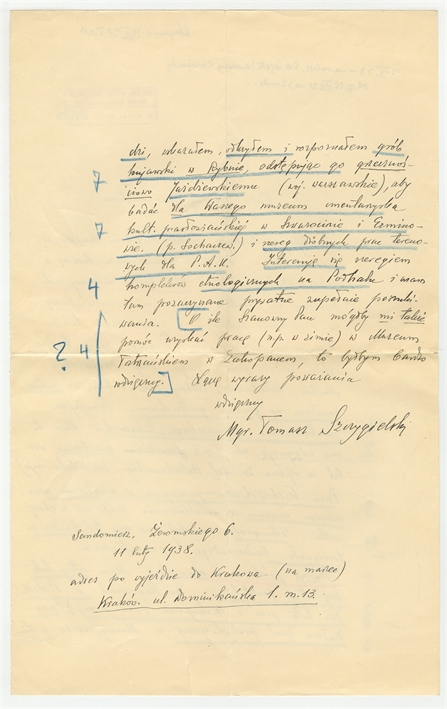 dzi, zbadałem, odkryłem i rozpoznałem grób
kujawski w Rybnie, odstępując go grzecznoś-
ciowo Jażdżewskiemu (woj. warszawskie), aby
badać dla Waszego muzeum cmentarzyska
kult. prasłowiańskiej w
wie. (p. Sochaczew.) i szereg drobnych prac tereno-
7
7
wych dla P.A.U. Interesuję się szeregiem
4
kompleksów etnologicznych na Podhalu i mam
tam poszukiwania prywatne zupełnie
wania. [O ile Szanowny Pan mógłby mi także
? 4
pomóc uzyskać pracę (np. w zimie) w Muzeum
Tatrzańskiem w Zakopanem, to byłbym bardzo
wdzięczny.] Łączę wyrazy poważania
wdzięczny
Mgr. Tomasz Szczygielski
Sandomierz, Żeromskiego 6.
11 luty 1938.
adres po wyjeździe do Krakowa (na marzec)
Kraków. ul. Dominikańska 1. m. 13.